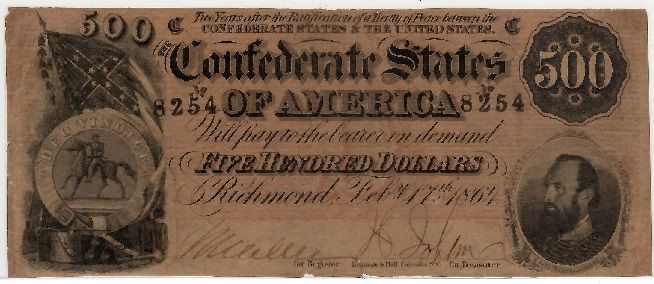 500 C Two Years after the Ratification of a Treaty of Peace between the C
CONFEDERATE STATES & THE UNITED STATES.
THE Confederate States 500
No 8254 OF AMERICA No 8254
DEO VINDICE
Will pay to the bearer on demand
FIVE HUNDRED DOLLARS
Richmond, Feby. 17th 1864
for Register Keatinge & Ball Columbia S.C. for Treasurer